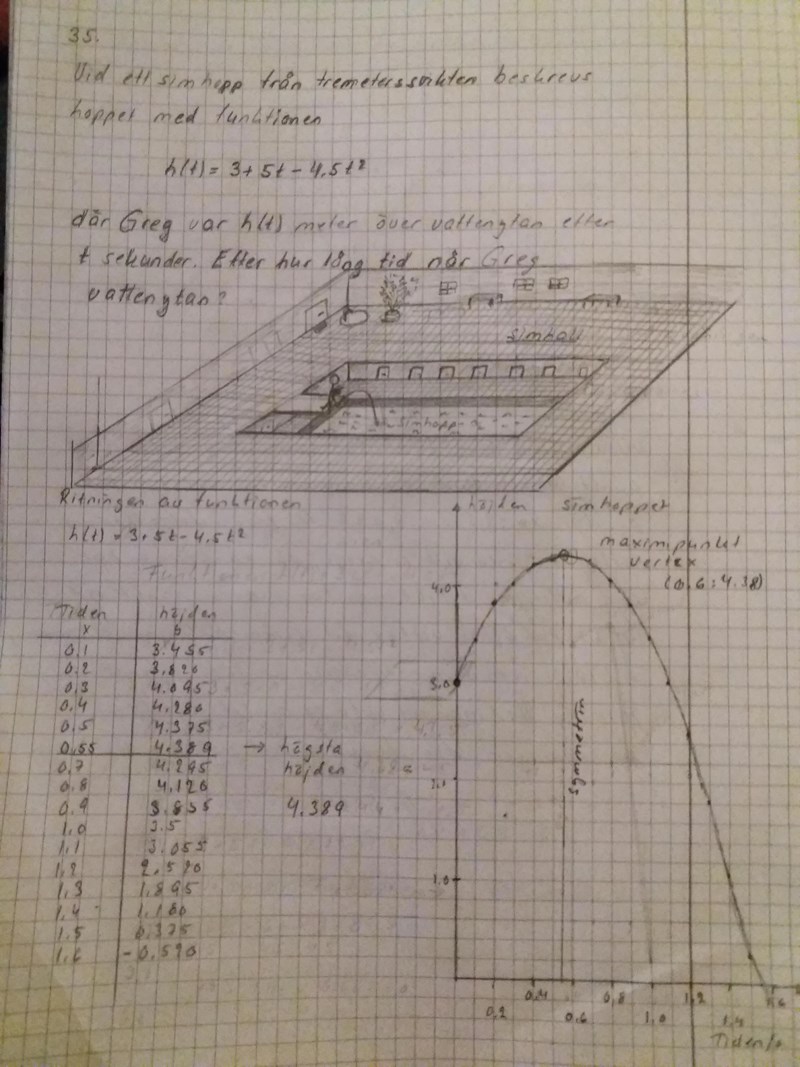 35.
Vid ett simhopp från tremeterssvikten beskrevs
hoppet med funktionen
h(t) = 3+5t - 4.5t²
där Greg var h(t) meter över vattenytan efter
t sekunder. Efter hur lång tid når Greg
vattenytan?
simhall
simhopp
Ritningen av funktionen
h(t) = 3+5t-4.5t²
Tiden höjden
x
0.1 3.455
0.2 3.820
0.3 4.095
0.4 4.280
0.5 4.375
0.55 4.389 → högsta
0.7 4.295 höjden
0.8 4.120
0.9 3.855 4.389
1.0 3.5
1.1 3.055
1.2 2.520
1.3 1.895
1.4 1.180
1.5 0.375
1.6 -0.520
höjden simhoppet
maximipunkt
vertex
(0.6; 4.38)
4.0
3.0
1.0
symmetrin
0.4 0.8 1.2 1.6
0.2 0.6 1.0 1.4
Tiden/s